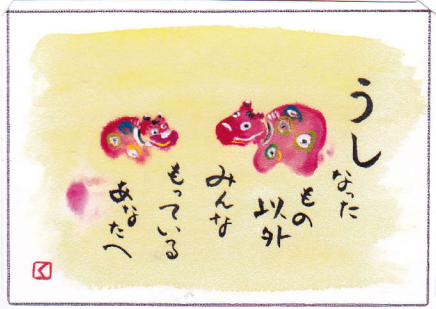 うし
なった
もの
以外
みんな
もっている
あなたへ
く